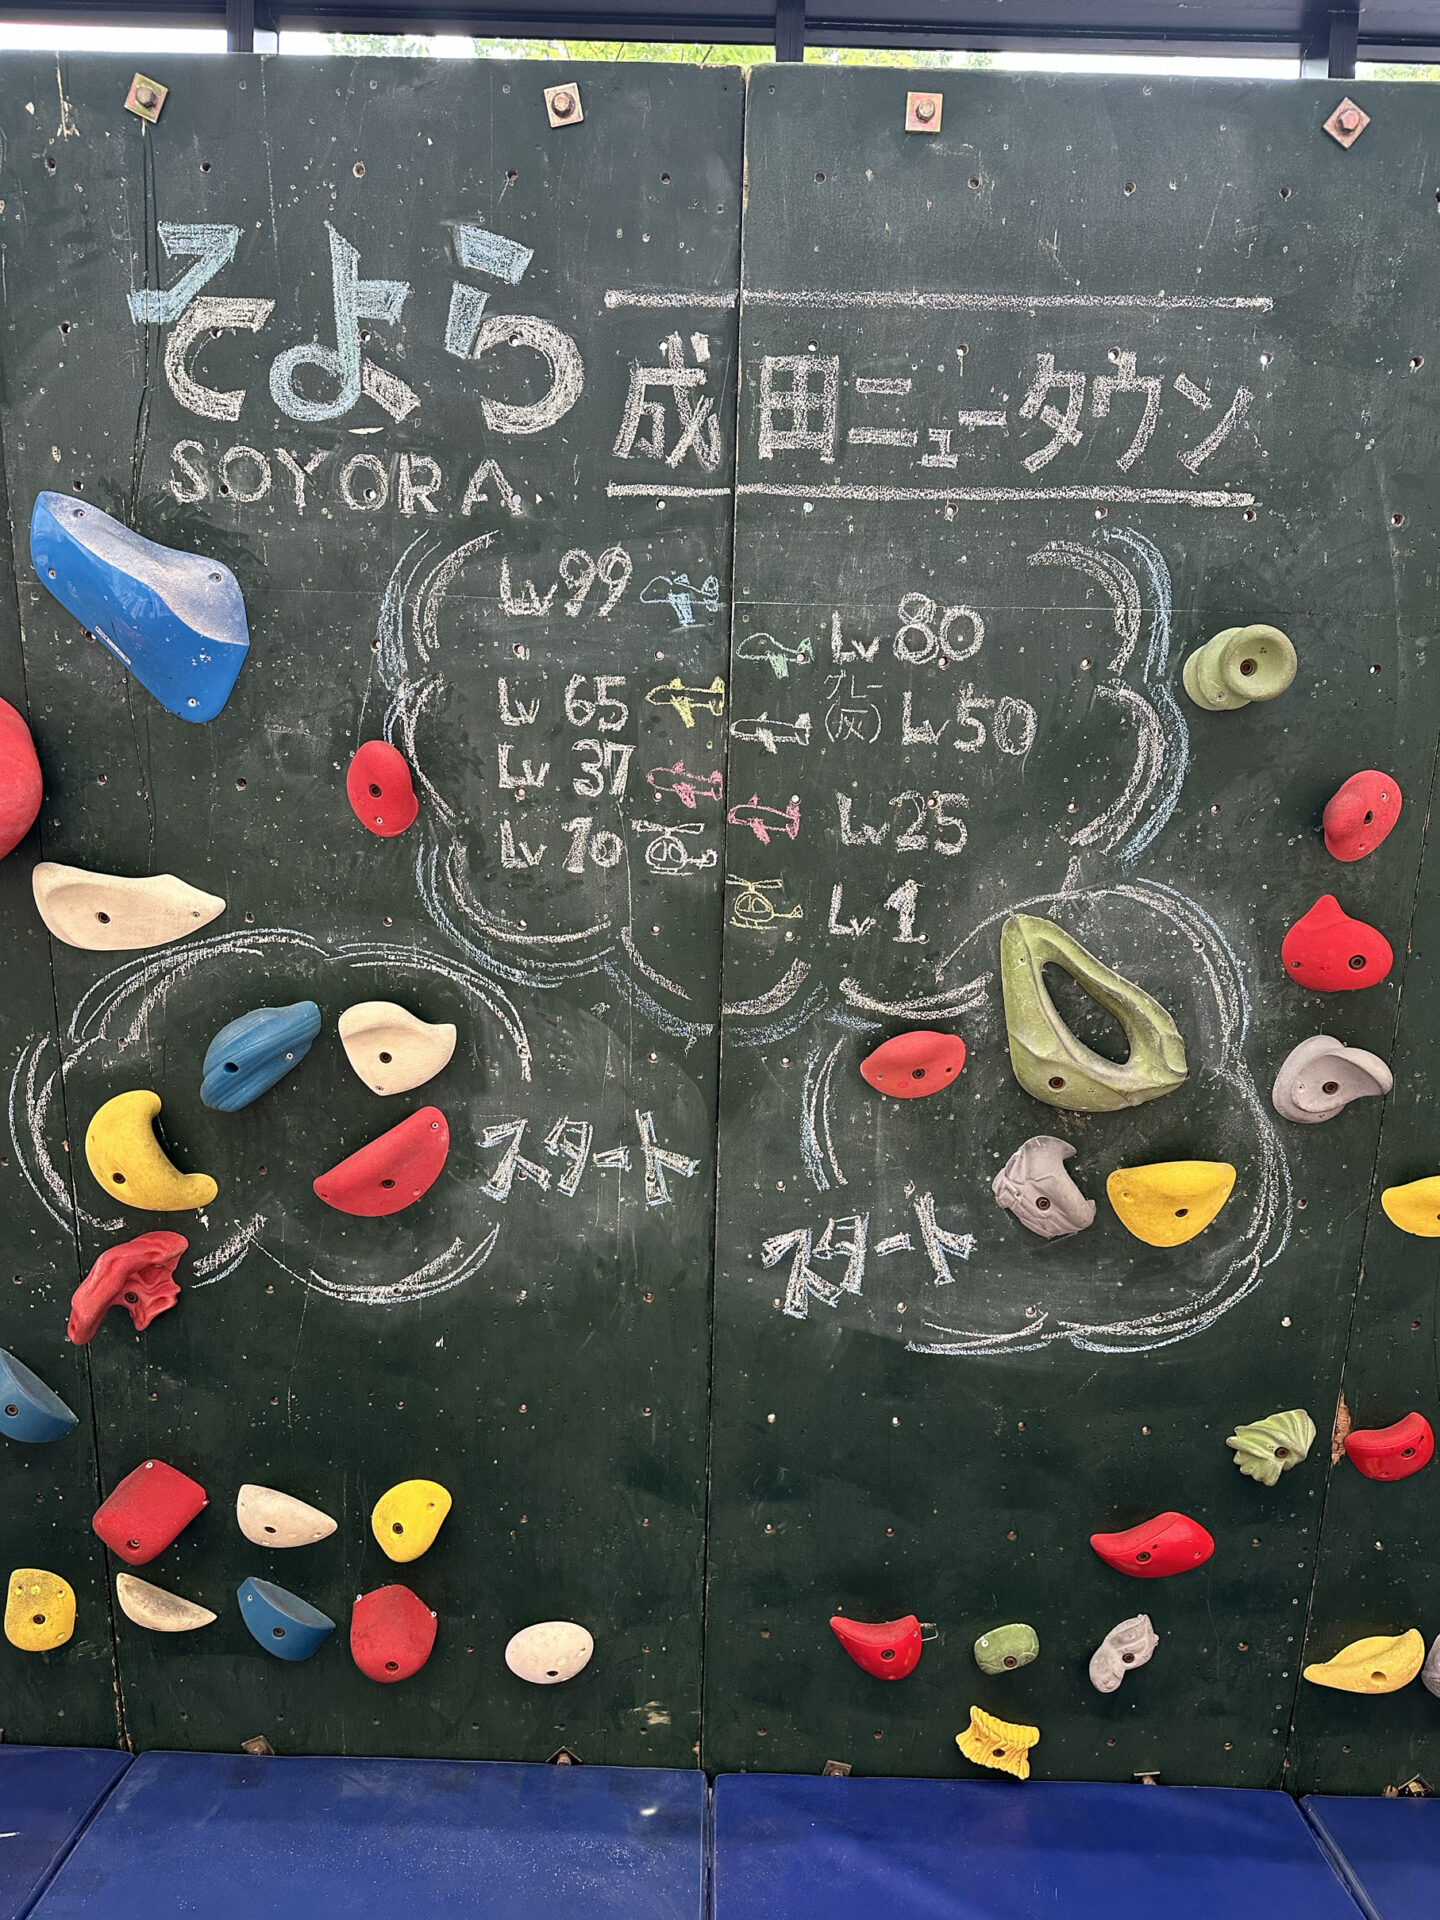 そよら
SOYORA
成田ニュータウン
Lv 99
Lv 80
Lv 65
グレー
(灰) Lv 50
Lv 37
Lv 25
Lv 10
Lv 1
スタート
スタート